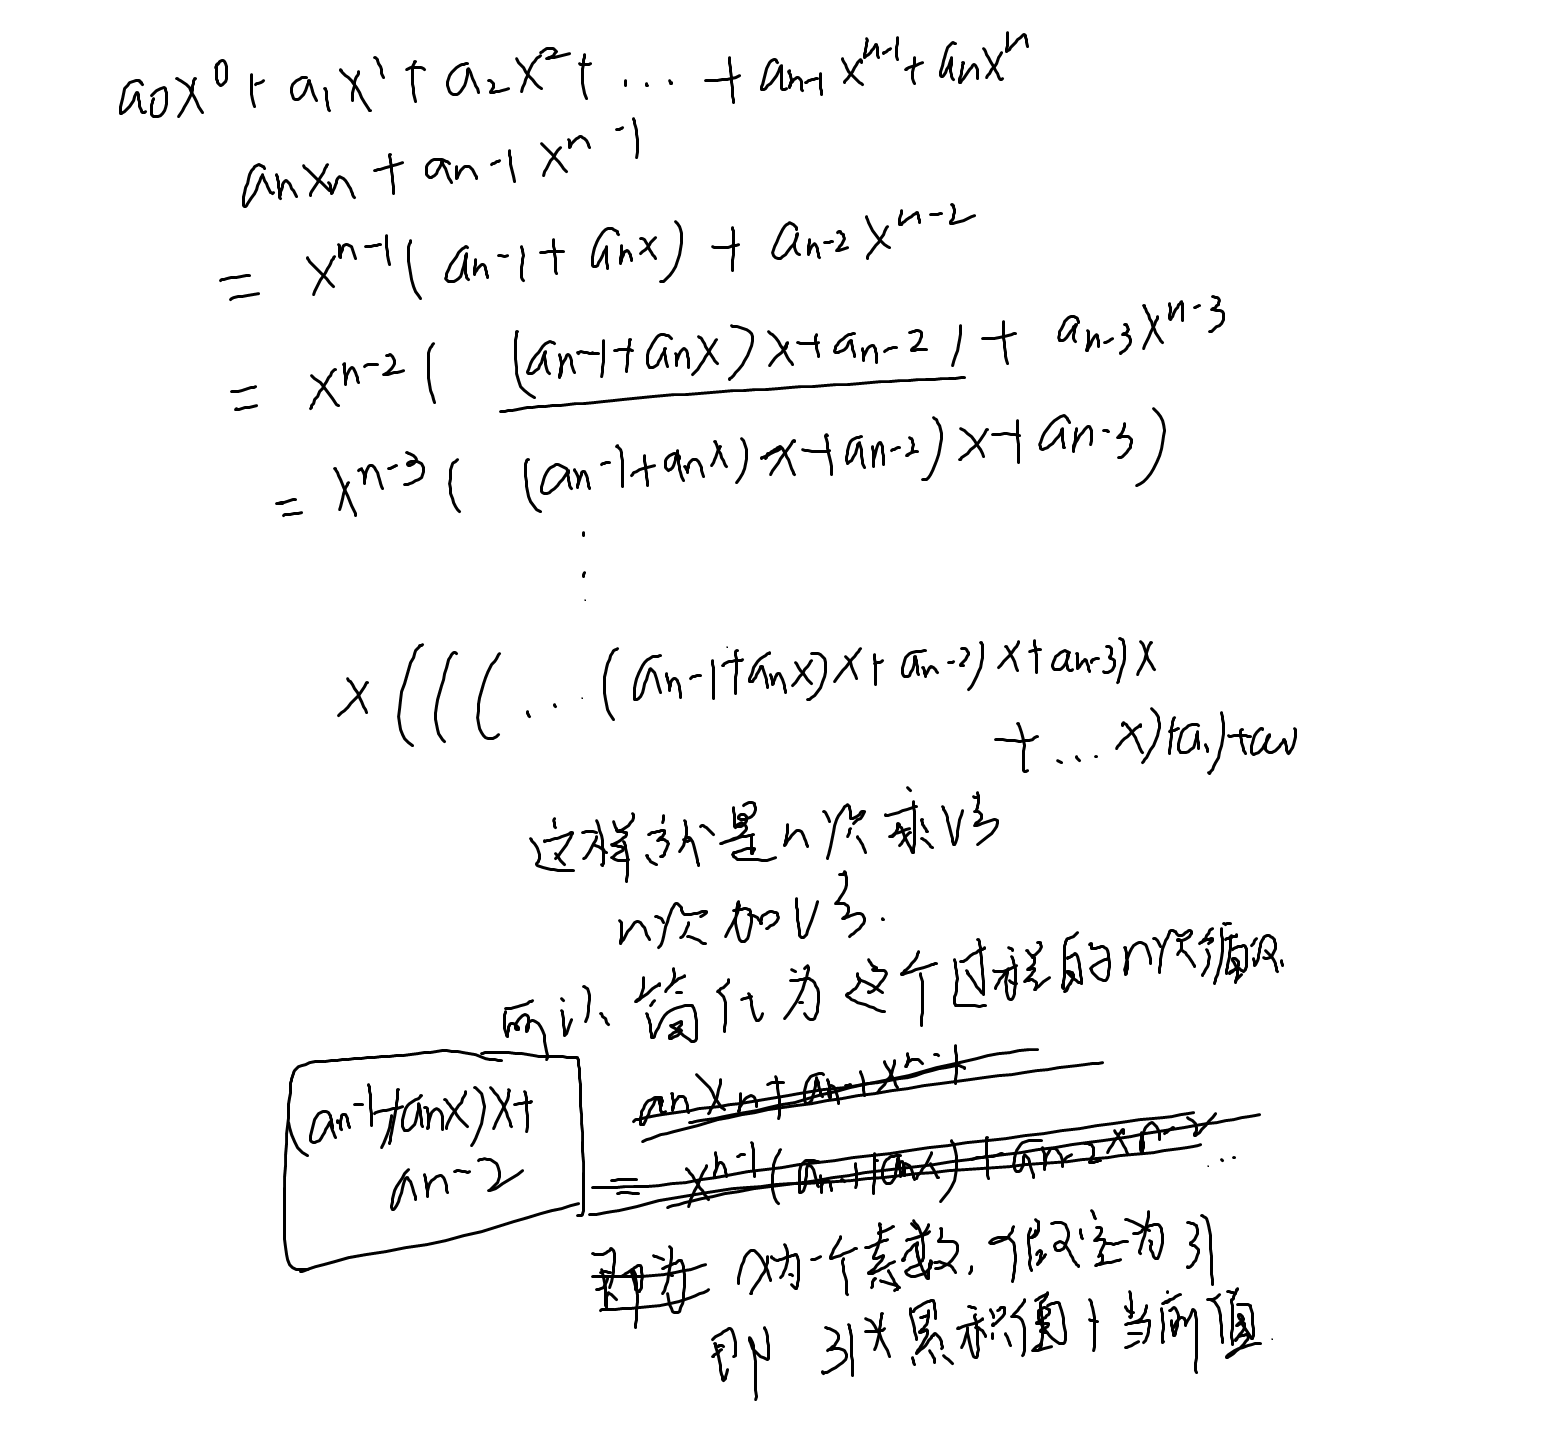 a0x^0 + a1x^1 + a2x^2 + ... + an-1x^n-1 + anx^n
anxn + an-1x^n-1
= x^n-1(an-1+anx) + an-2x^n-2
= x^n-2( (an-1+anx)x+an-2) + an-3x^n-3
= x^n-3( (an-1+anx)x+an-2)x+an-3)
⋮
x(((...(an-1+anx)x+an-2)x+an-3)x
+...x)+a1)+a0
这样就是n次乘法
n次加法.
所以简化为这个过程的n次循环
(an-1+anx)x+
an-2
anxn+an-1x^n-1
= x^n-1(an-1+anx)+an-2x^n-2 ...
即为 x为一个素数,假定为31
即 31*累积值+当前值